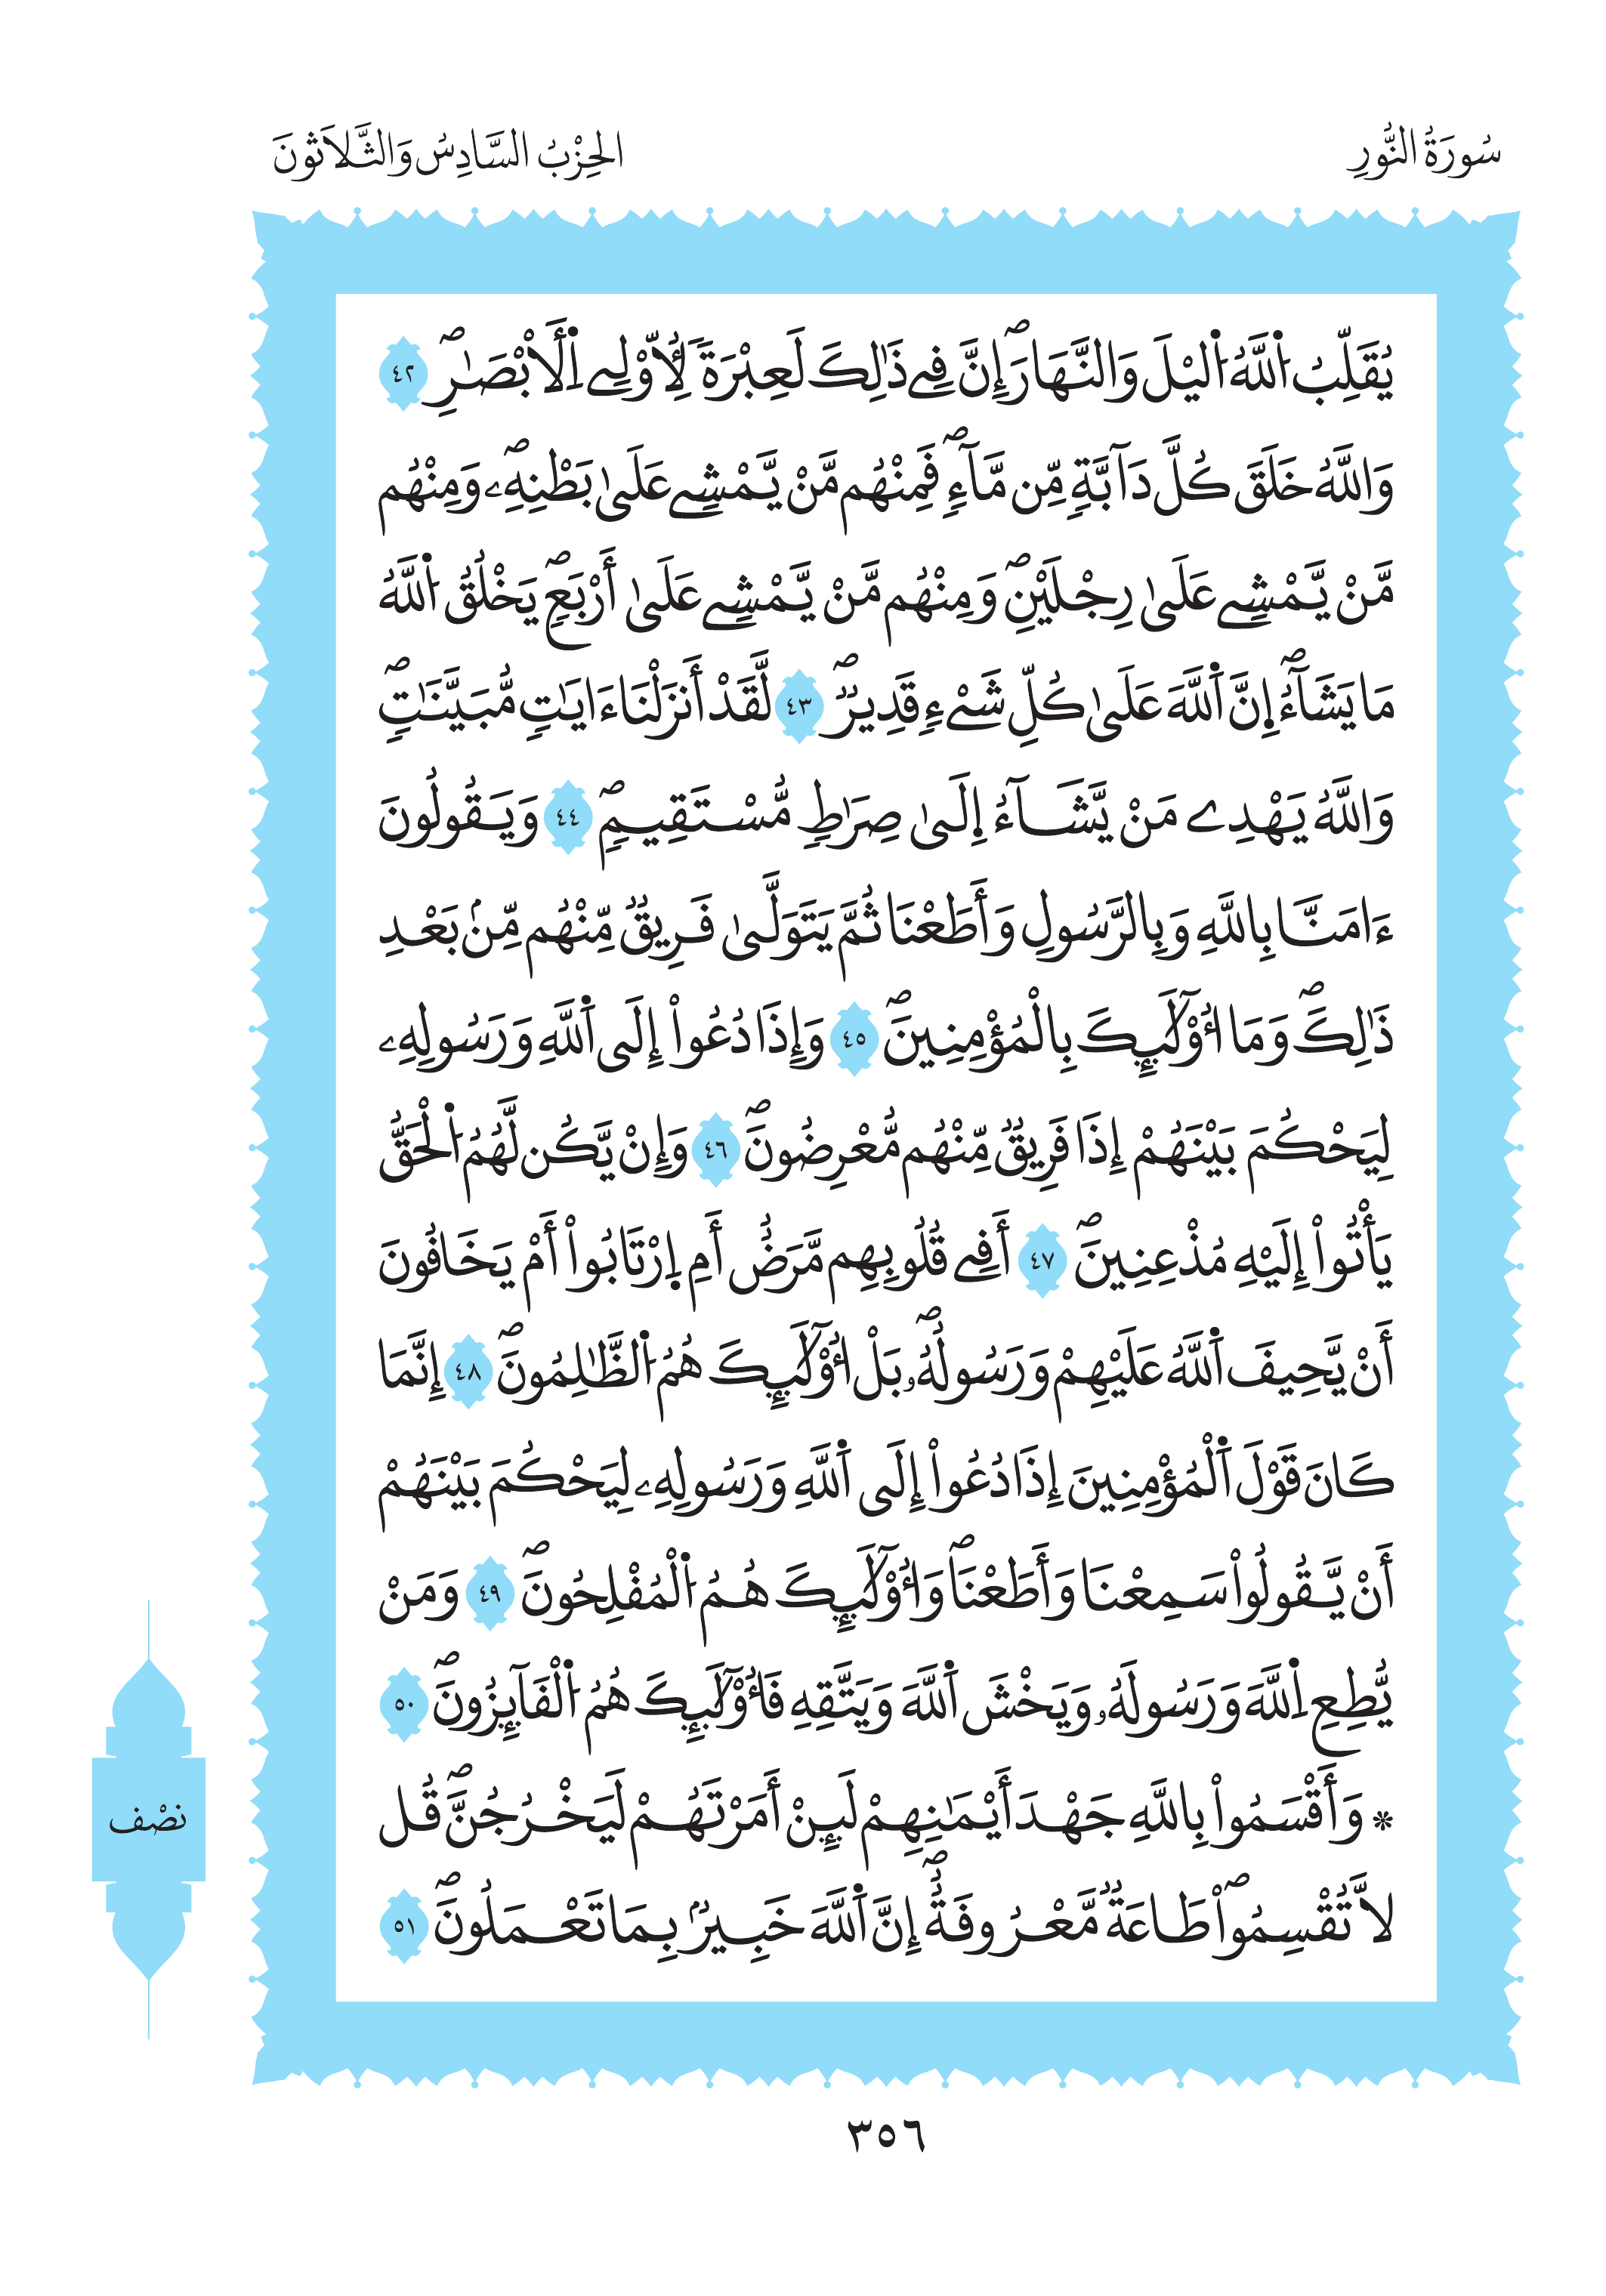 سُورَةُ النُّورِ
الحِزْبُ السَّادِسُ وَالثَّلاَثُونَ
يُقَلِّبُ اُ۬للَّهُ اُ۬ليْلَ وَالنَّهَارَۖ إِنَّ فِے ذَٰلِكَ لَعِبْرَةٗ لِّأُوْلِے اِ۬لَابْصَٰرِۖ ٤٢
وَاللَّهُ خَلَقَ كُلَّ دَآبَّةٖ مِّن مَّآءٖۖ فَمِنْهُم مَّنْ يَّمْشِے عَلَىٰ بَطْنِهِۦۖ وَمِنْهُم
مَّنْ يَّمْشِے عَلَىٰ رِجْلَيْنِۖ وَمِنْهُم مَّنْ يَّمْشِے عَلَىٰ أَرْبَعٖۖ يَخْلُقُ اُ۬للَّهُ
مَا يَشَآءُۖ اِ۪نَّ اَ۬للَّهَ عَلَىٰ كُلِّ شَےْءٖ قَدِيرٞۖ ٤٣ لَّقَدْ أَنزَلْنَا ءَايَٰتٖ مُّبَيَّنَٰتٖۖ
وَاللَّهُ يَهْدِے مَنْ يَّشَآءُ اِ۪لَىٰ صِرَٰطٖ مُّسْتَقِيمٖۖ ٤٤ وَيَقُولُونَ
ءَامَنَّا بِاللَّهِ وَبِالرَّسُولِ وَأَطَعْنَا ثُمَّ يَتَوَلَّىٰ فَرِيقٞ مِّنْهُم مِّنۢ بَعْدِ
ذَٰلِكَۖ وَمَا أُوْلَٰٓئِكَ بِالْمُؤْمِنِينَۖ ٤٥ وَإِذَا دُعُواْ إِلَى اَ۬للَّهِ وَرَسُولِهِۦ
لِيَحْكُمَ بَيْنَهُمْ إِذَا فَرِيقٞ مِّنْهُم مُّعْرِضُونَۖ ٤٦ وَإِنْ يَّكُن لَّهُمُ اُ۬لْحَقُّ
يَأْتُواْ إِلَيْهِ مُذْعِنِينَۖ ٤٧ أَفِے قُلُوبِهِم مَّرَضٌ أَمِ اِ۪رْتَابُواْ أَمْ يَخَافُونَ
أَنْ يَّحِيفَ اَ۬للَّهُ عَلَيْهِمْ وَرَسُولُهُۥۖ بَلْ أُوْلَٰٓئِكَ هُمُ اُ۬لظَّٰلِمُونَۖ ٤٨ إِنَّمَا
كَانَ قَوْلَ اَ۬لْمُؤْمِنِينَ إِذَا دُعُواْ إِلَى اَ۬للَّهِ وَرَسُولِهِۦ لِيَحْكُمَ بَيْنَهُمْ
أَنْ يَّقُولُواْ سَمِعْنَا وَأَطَعْنَاۖ وَأُوْلَٰٓئِكَ هُمُ اُ۬لْمُفْلِحُونَۖ ٤٩ وَمَنْ
يُّطِعِ اِ۬للَّهَ وَرَسُولَهُۥ وَيَخْشَ اَ۬للَّهَ وَيَتَّقِهِ فَأُوْلَٰٓئِكَ هُمُ اُ۬لْفَآئِزُونَۖ ٥٠
* وَأَقْسَمُواْ بِاللَّهِ جَهْدَ أَيْمَٰنِهِمْ لَئِنْ أَمَرْتَهُمْ لَيَخْرُجُنَّۖ قُل
لاَّ تُقْسِمُواْۖ طَاعَةٞ مَّعْرُوفَةٌۖ إِنَّ اَ۬للَّهَ خَبِيرُۢ بِمَا تَعْمَلُونَۖ ٥١
نصْف
٣٥٦